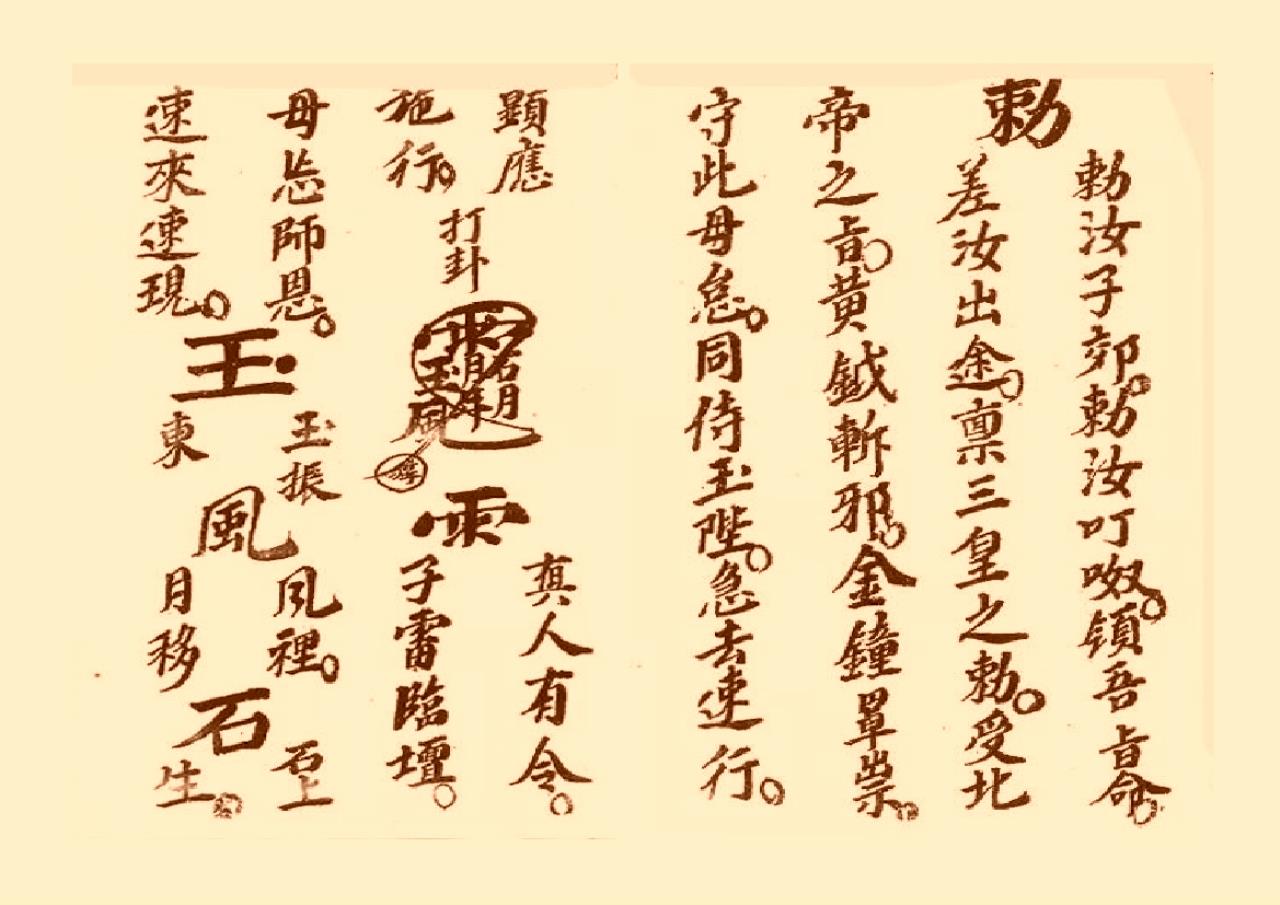 勅
勅汝子郊。勅汝叮呶。領吾旨命。
差汝出途。稟三皇之勅。受北
帝之旨。黄鉞斬邪。金鐘罩祟。
守此毋怠。同侍玉陛。急去速行。
顕應
施行。
打卦
雨
真人有令。
子雷臨壇。
毋忘師恩。
速來速現。
玉
玉振
東
風
風裡。
月移
石
石上
生。